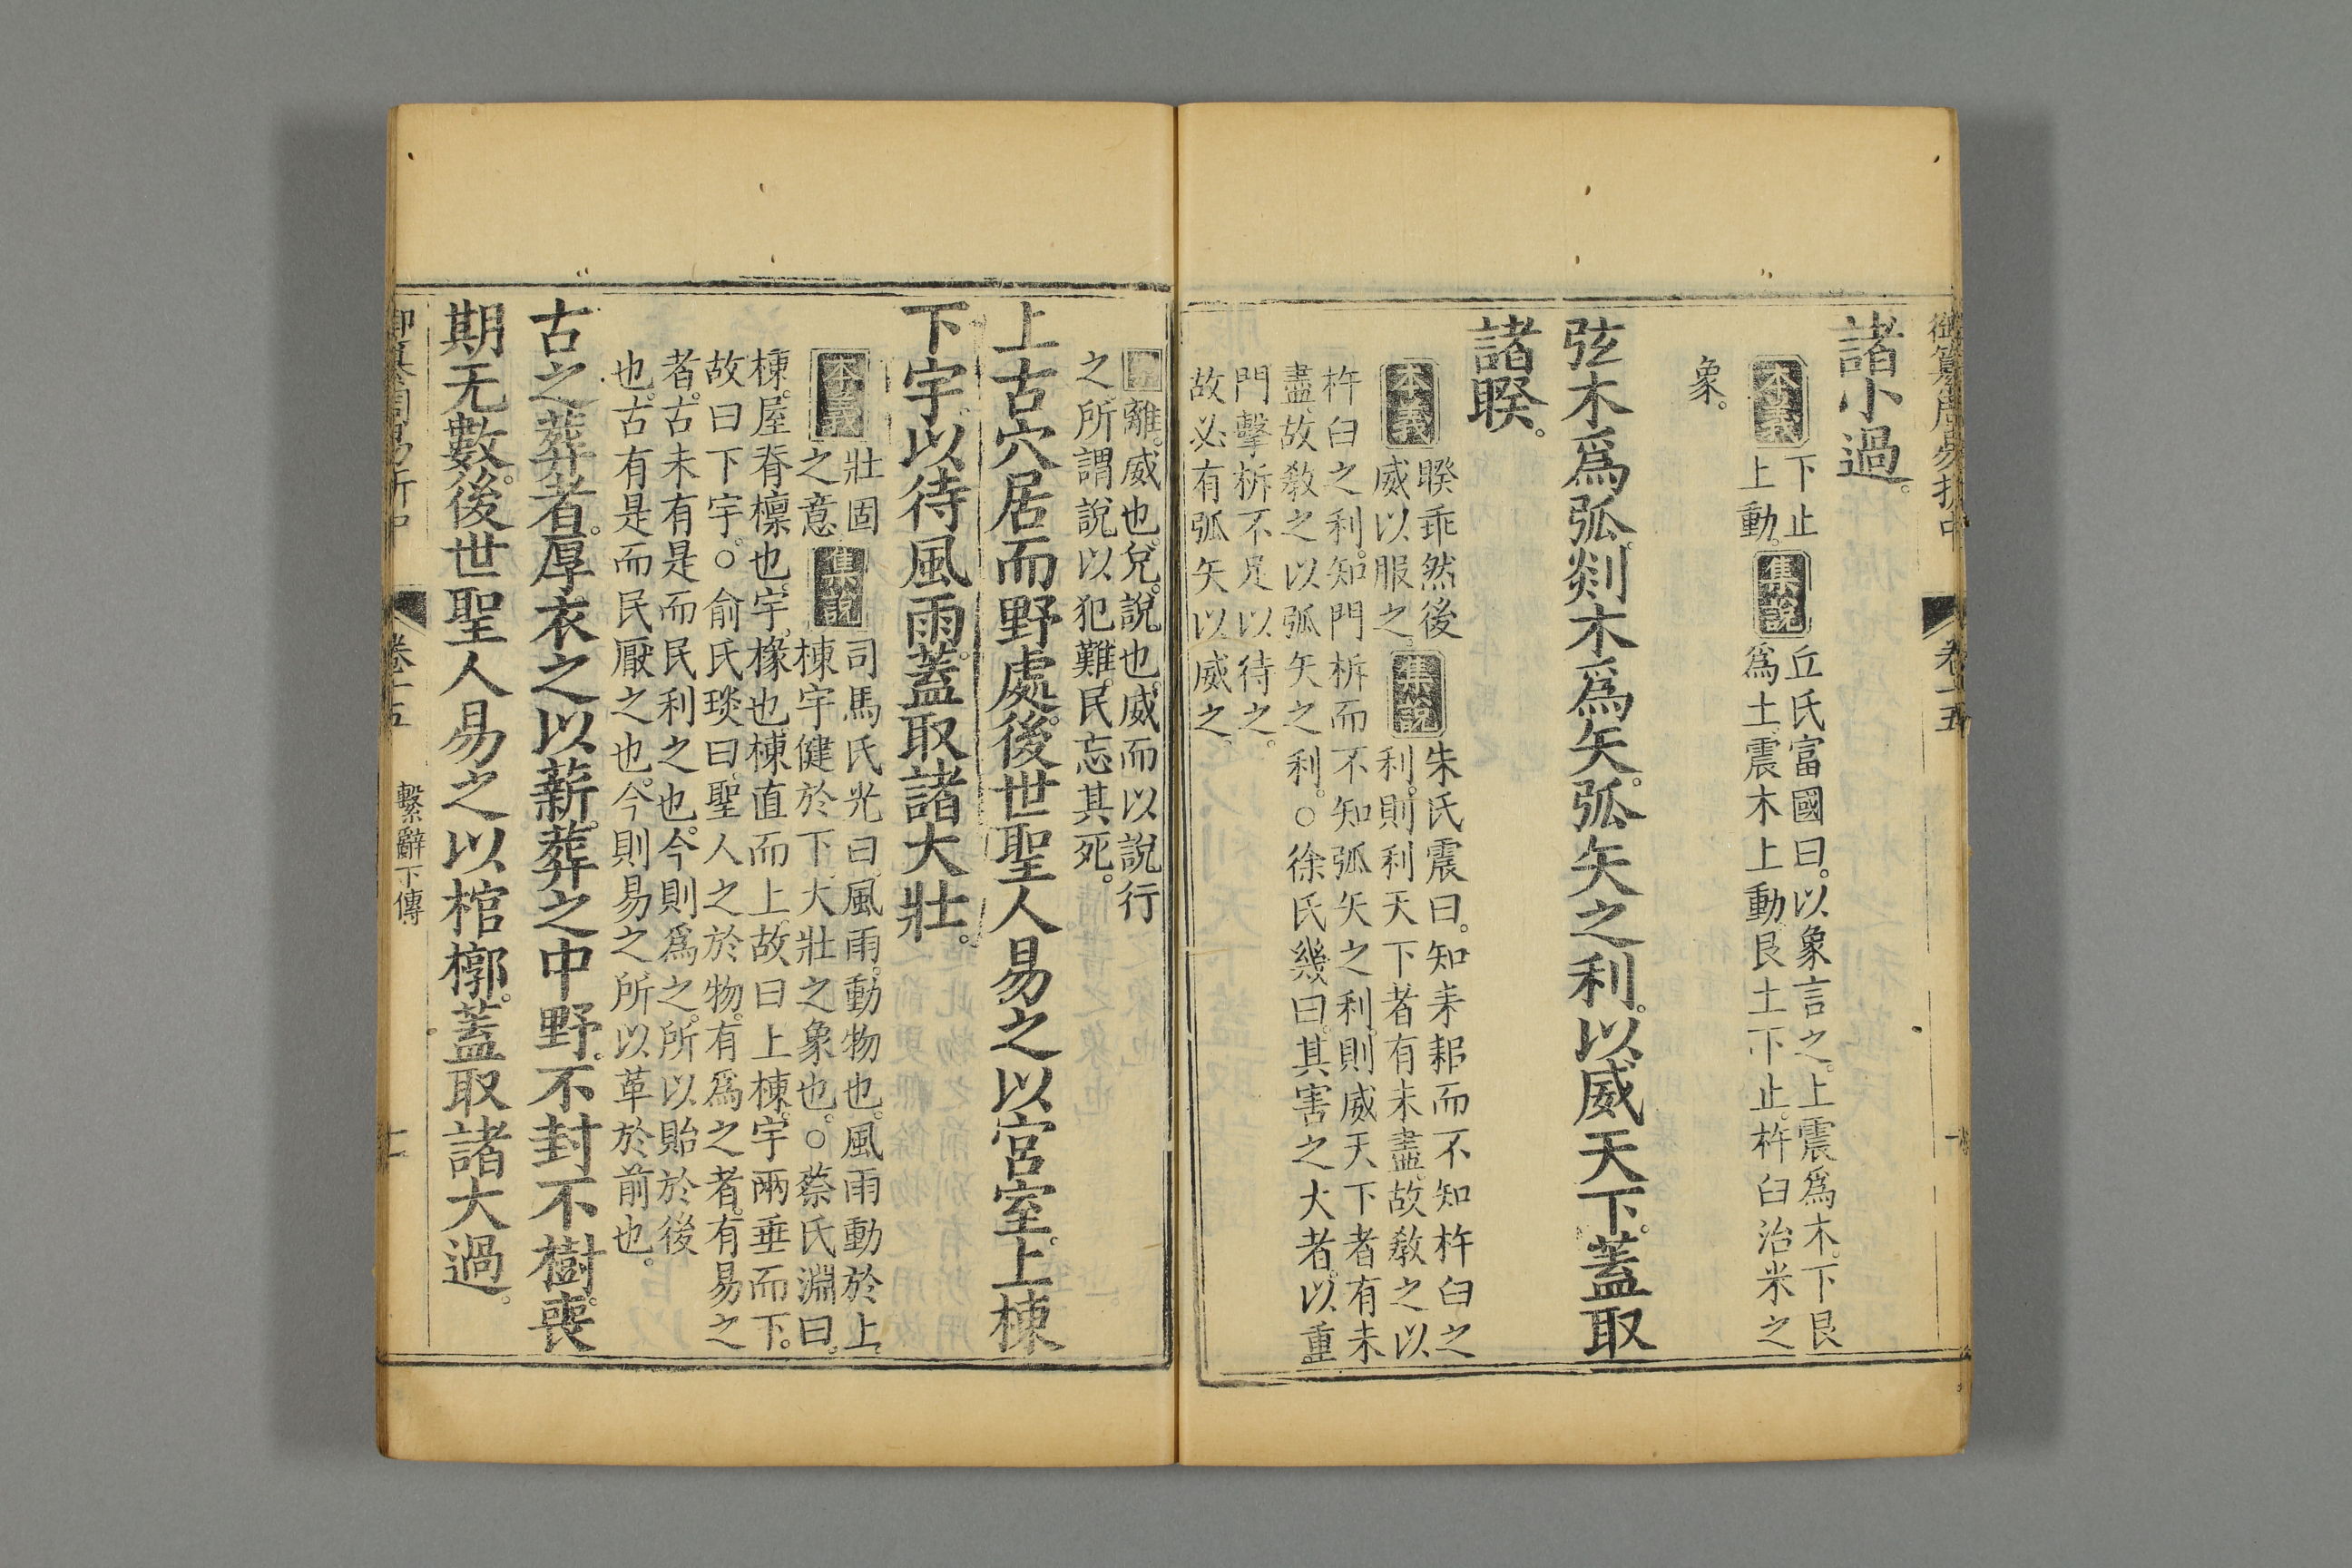 御纂周易折中
卷十五
諸小過。
本義
下止
上動。
集說
丘氏富國曰。以象言之。上震爲木。下艮
爲土。震木上動。艮土下止。杵臼治米之
象。
弦木爲弧。剡木爲矢。弧矢之利。以威天下。蓋取
諸睽。
本義
睽乖然後
威以服之。
集說
朱氏震曰。知耒耜而不知杵臼之
利。則利天下者有未盡。故敎之以
杵臼之利。知門柝而不知弧矢之利。則威天下者有未
盡。故敎之以弧矢之利。○徐氏幾曰。其害之大者。以重
門擊柝不足以待之。
故必有弧矢以威之。
離。威也。兌。說也。威而以說行
之。所謂說以犯難。民忘其死。
上古穴居而野處。後世聖人易之以宮室。上棟
下宇。以待風雨。蓋取諸大壯。
本義
壯固
之意
集說
司馬氏光曰。風雨。動物也。風雨動於上。
棟宇健於下。大壯之象也。○蔡氏淵曰。
棟。屋脊檁也。宇。椽也。棟直而上。故曰上棟。宇兩垂而下。
故曰下宇。○俞氏琰曰。聖人之於物。有爲之者。有易之
者。古未有是而民利之也。今則爲之。所以貽於後
也。古有是而民厭之也。今則易之。所以革於前也。
古之葬者。厚衣之以薪。葬之中野。不封不樹。喪
期无數。後世聖人易之以棺槨。蓋取諸大過。
御纂周易折中
卷十五
繫辭下傳